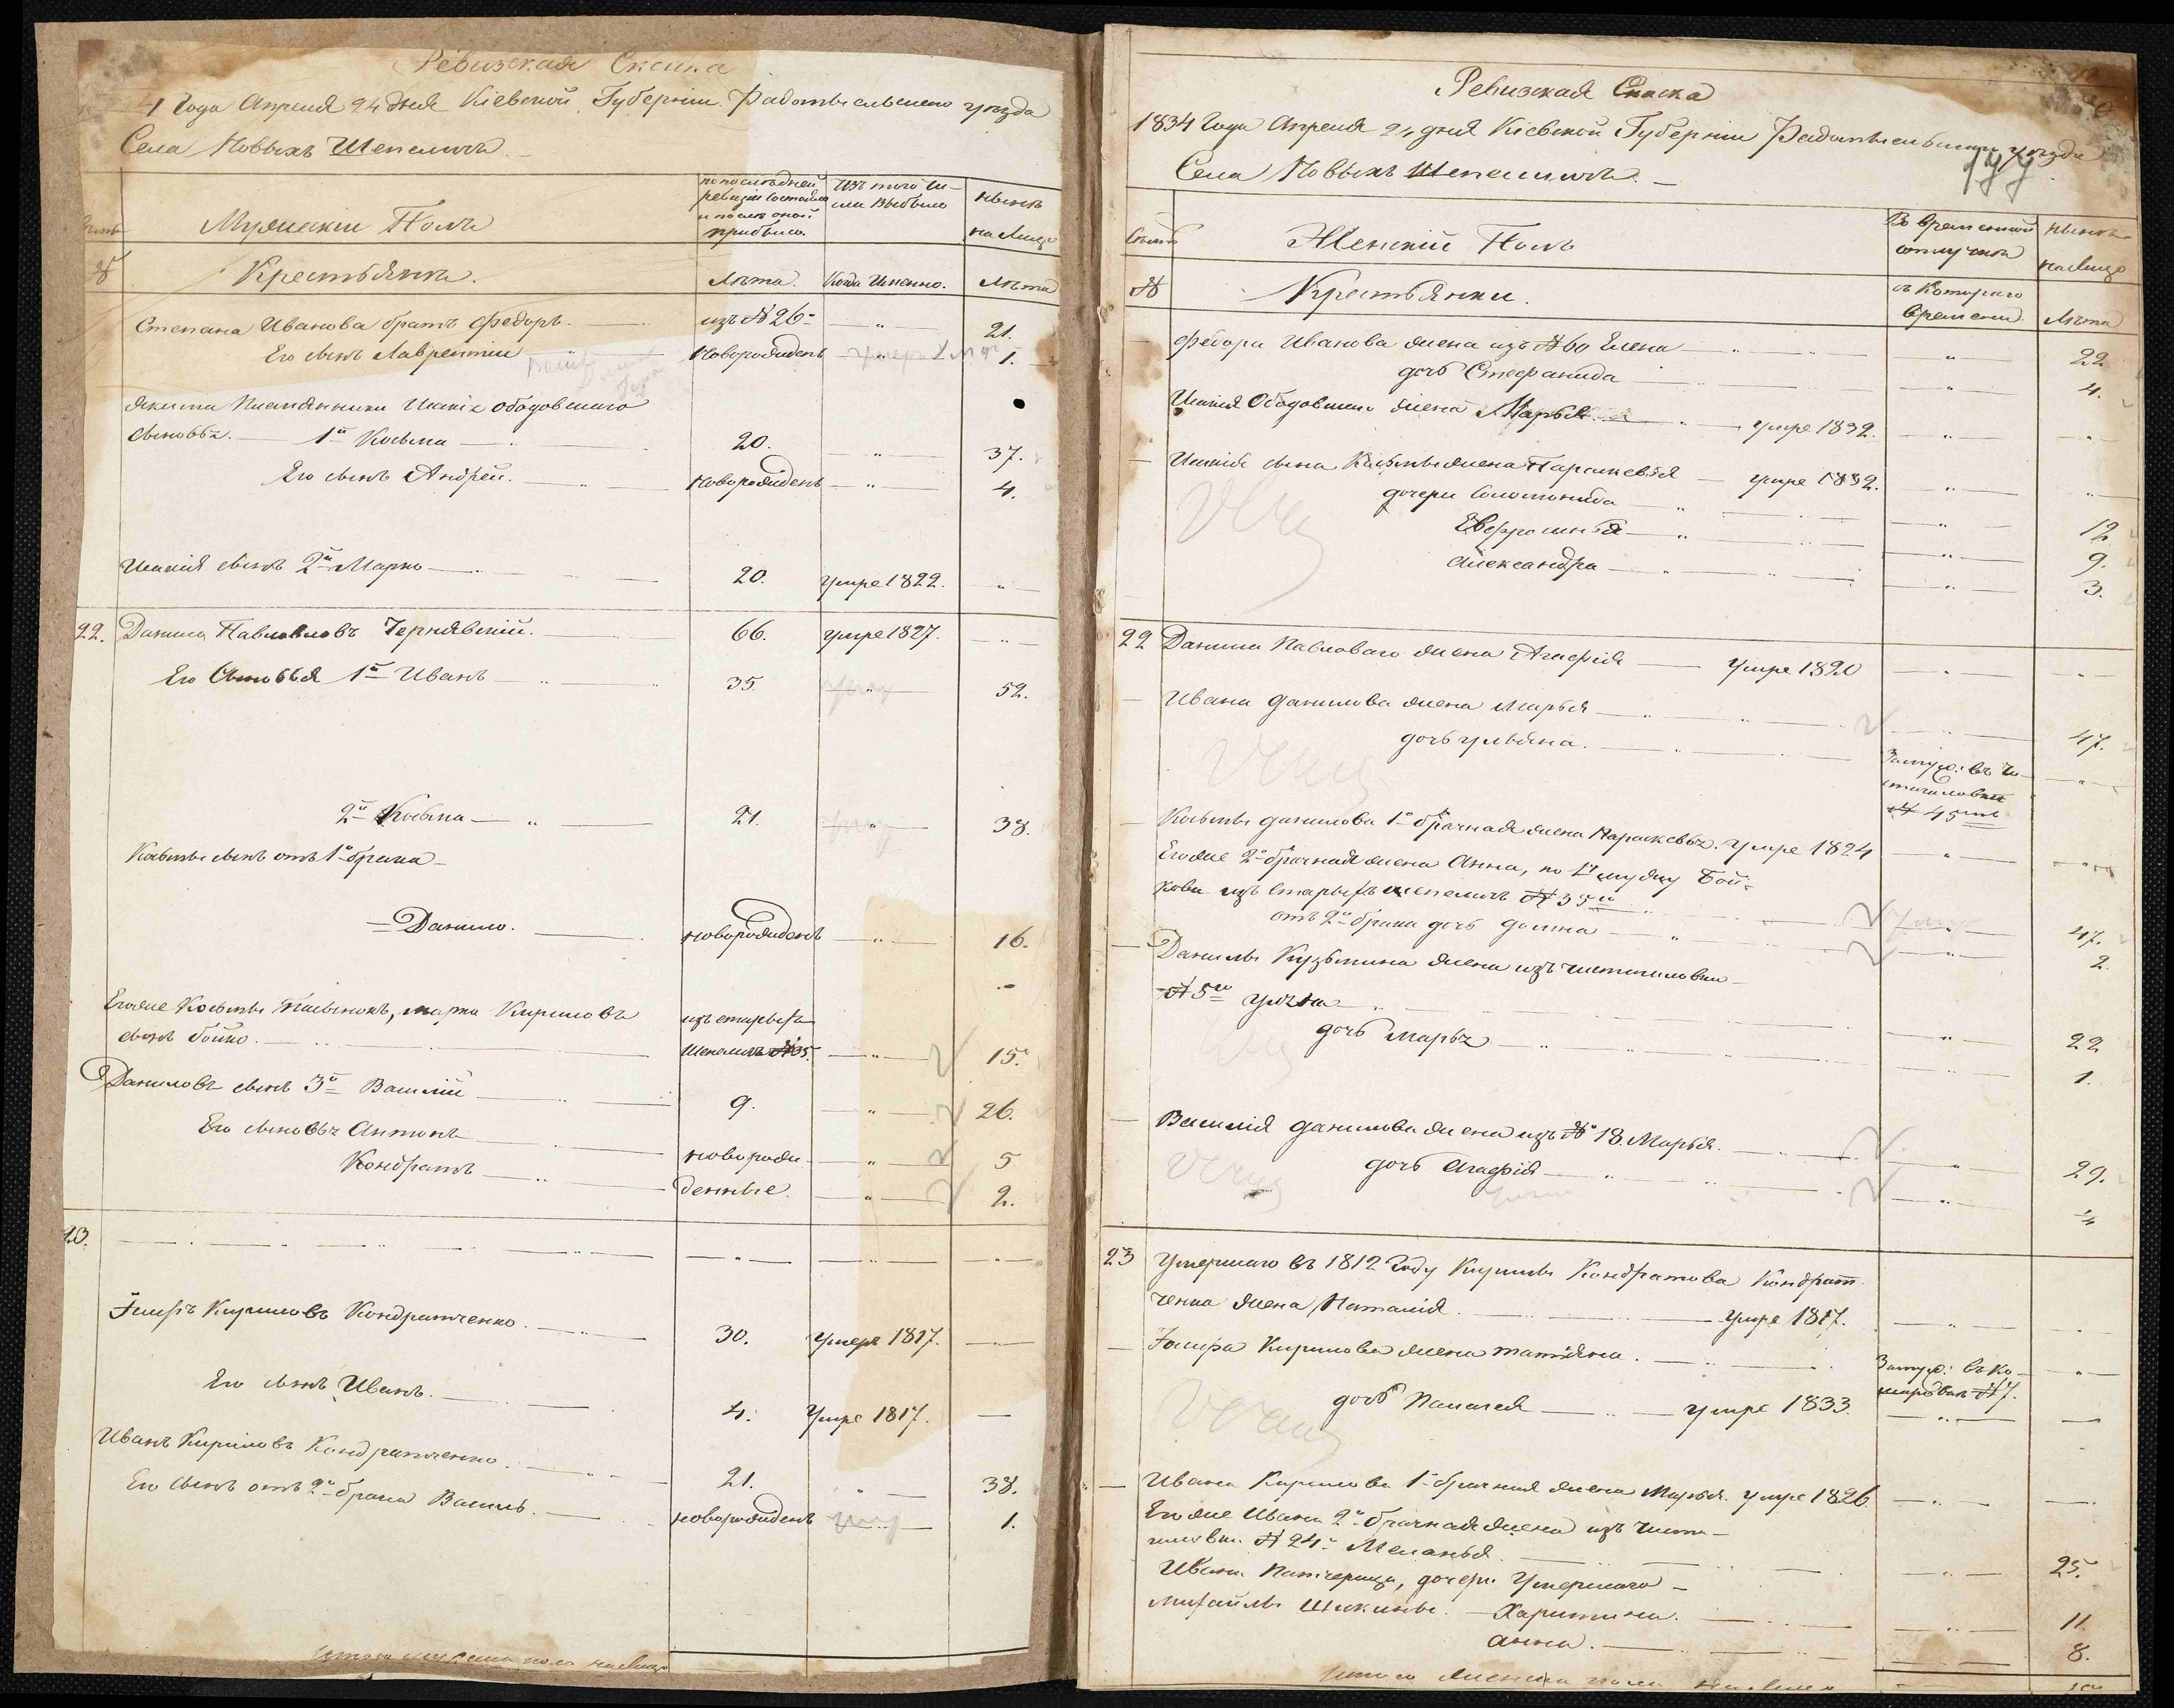 Ревизская Сказка
Года Апреля 24 дня Кіевской Губерніи Радомысльскаго уезда
Села Новыхъ Шепеличъ
Мужескій Полъ
по последней ревизіи состояло и после оной прибыло
Изъ того числа выбыло
ныне на лицо
№
Крестьяне.
Лета.
Когда Именно.
Лета
Степана Иванова братъ Федоръ
изъ № 26
21.
Его сынъ Лаврентій
Новорожденъ
1.
Якима племянники Исакія Ободовскаго
сыновья. 1й Косьма
20.
37.
Его сынъ Андрей.
Новорожденъ
4.
Исакія сынъ 2й Марко
20.
умре 1822.
22. Данило Павловъ Чернявскій.
66.
умре 1827.
Его Сыновья 1й Иванъ
35.
52.
2й Косьма
21.
38.
Косьмы сынъ отъ 1го брака
Данило.
новорожденъ
16.
Его же Косьмы пасынокъ, Кириловъ
изъ старыхъ
сынъ Бойко.
Шепеличъ № 35.
15.
Даниловъ сынъ 3й Василій
9.
26.
Его сыновья Антонъ
новорож-
5
Кондратъ
денные.
2.
23.
Кириловъ Кондратченко.
30.
Умеръ 1817.
Его сынъ Иванъ.
4.
Умре 1817.
Иванъ Кириловъ Кондратченко.
21.
38.
Его сынъ отъ 2го брака Василь.
новорожденъ
1.
Итого мужеска пола налицо
Ревизская Сказка
1834 Года Апреля 24 дня Кіевской Губерніи Радомысльскаго уезда
177
Села Новыхъ Шепеличъ.
Семьи
Женскій Полъ
Во временной отлучке
ныне на лицо
№
Крестьянки.
съ Котораго времени
Лета
Федора Иванова жена изъ № 60 Елена
22
дочь Стефанида
4.
Исакія Ободовскаго жена Марья
умре 1832.
Исакія сына Косьмы жена Параскевія
умре 1832.
дочери Соломонида
12
Евфросинья
9.
Александра
3.
22 Данила Павловаго жена Агафія
умре 1820
Ивана Данилова жена Марья
47.
дочь Ульяна.
Замуж: въ Чистогаловке № 45
Косьмы Данилова 1о брачная жена Параскевья. умре 1824
Его же 2о брачная жена Анна, по 1му мужу Бой-
кова изъ Старыхъ Шепеличъ № 35го
47.
отъ 2го брака дочь Домна
2.
Данилы Кузьмина жена изъ Чистогаловки
№ 5го Улита
22
дочь Марья
1.
Василія Данилова жена изъ № 18. Марья.
29.
дочь Агафія
4
23 Умершаго въ 1812 Году Кирилы Кондратова Кондрат-
ченка жена Наталія.
умре 1817.
Кирилова жена Татіяна.
Замуж:
№ 7.
дочь Палагея
умре 1833.
Ивана Кирилова 1о брачная жена Марья. умре 1826
Его же Ивана 2о брачная жена изъ Чисто-
галовки № 24. Меланья
25.
Ивана падчерицы, дочери Умершаго
Михайлы Шикина. Харитина.
11.
Анна.
8.
Итого женска пола налицо